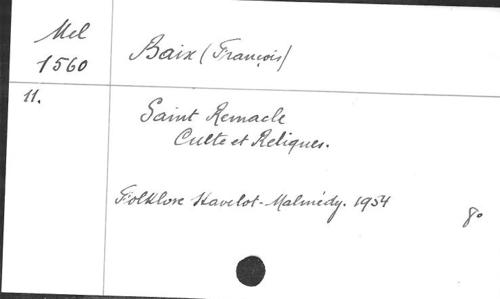 Mel
1560
Baix (François)
11.
Saint Remacle
Culte et Reliques.
Folklore Stavelot-Malmédy. 1954
8°